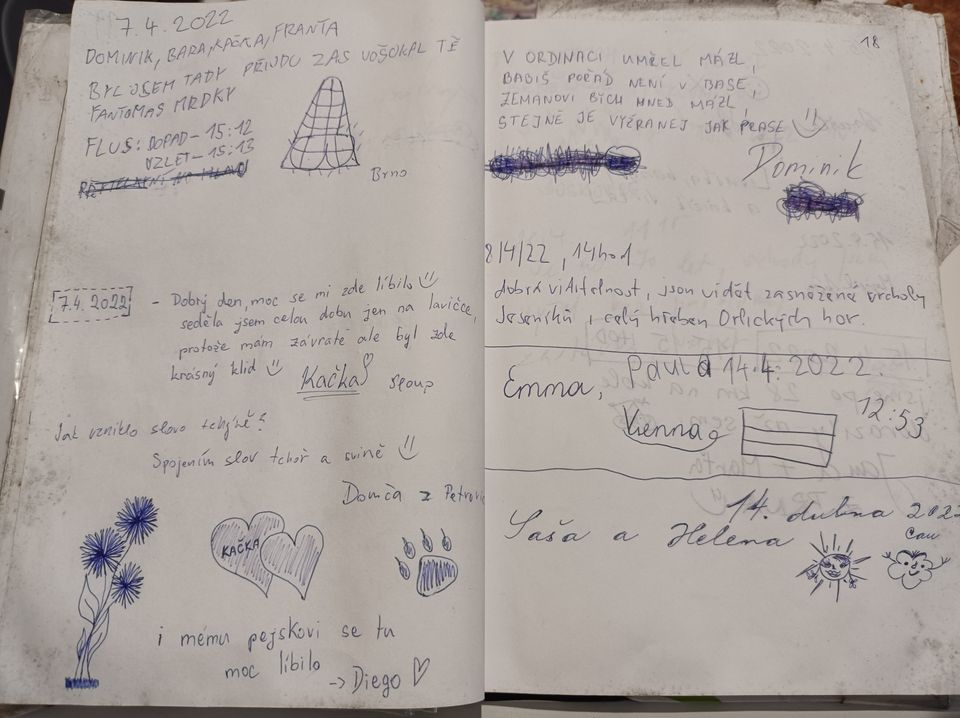 7.4.2022
DOMINIK, BARA, KAČKA, FRANTA
BYL JSEM TADY PŘIJDU ZAS VOŠOKAL TĚ
FANTOMAS MRDKY
FLUS: DOPAD - 15:12
VZLET - 15:13
Brno
7.4.2022 - Dobrý den, moc se mi zde líbilo
seděla jsem celou dobu jen na lavičce,
protože mám závratě ale byl zde
krásný klid
Kačka sloup
Jak vzniklo slovo tchýně?
Spojením slov tchoř a svině
Domča z
KAČKA
i mému pejskovi se tu
moc líbilo
-> Diego
18
V ORDINACI UMŘEL MÁZL,
BABIŠ POŘÁD NENÍ V BASE,
ZEMANOVI BYCH HNED MÁZL,
STEJNĚ JE VYŽRANEJ JAK PRASE
Dominik
8/4/22, 14hod
dobrá viditelnost, jsou vidět zasněžené vrcholy
Jeseníků, celý hřeben Orlických hor.
Emma, Paula 14.4.2022.
12:53
Vienna
14. dubna 2022
Saša a Helena
Čau